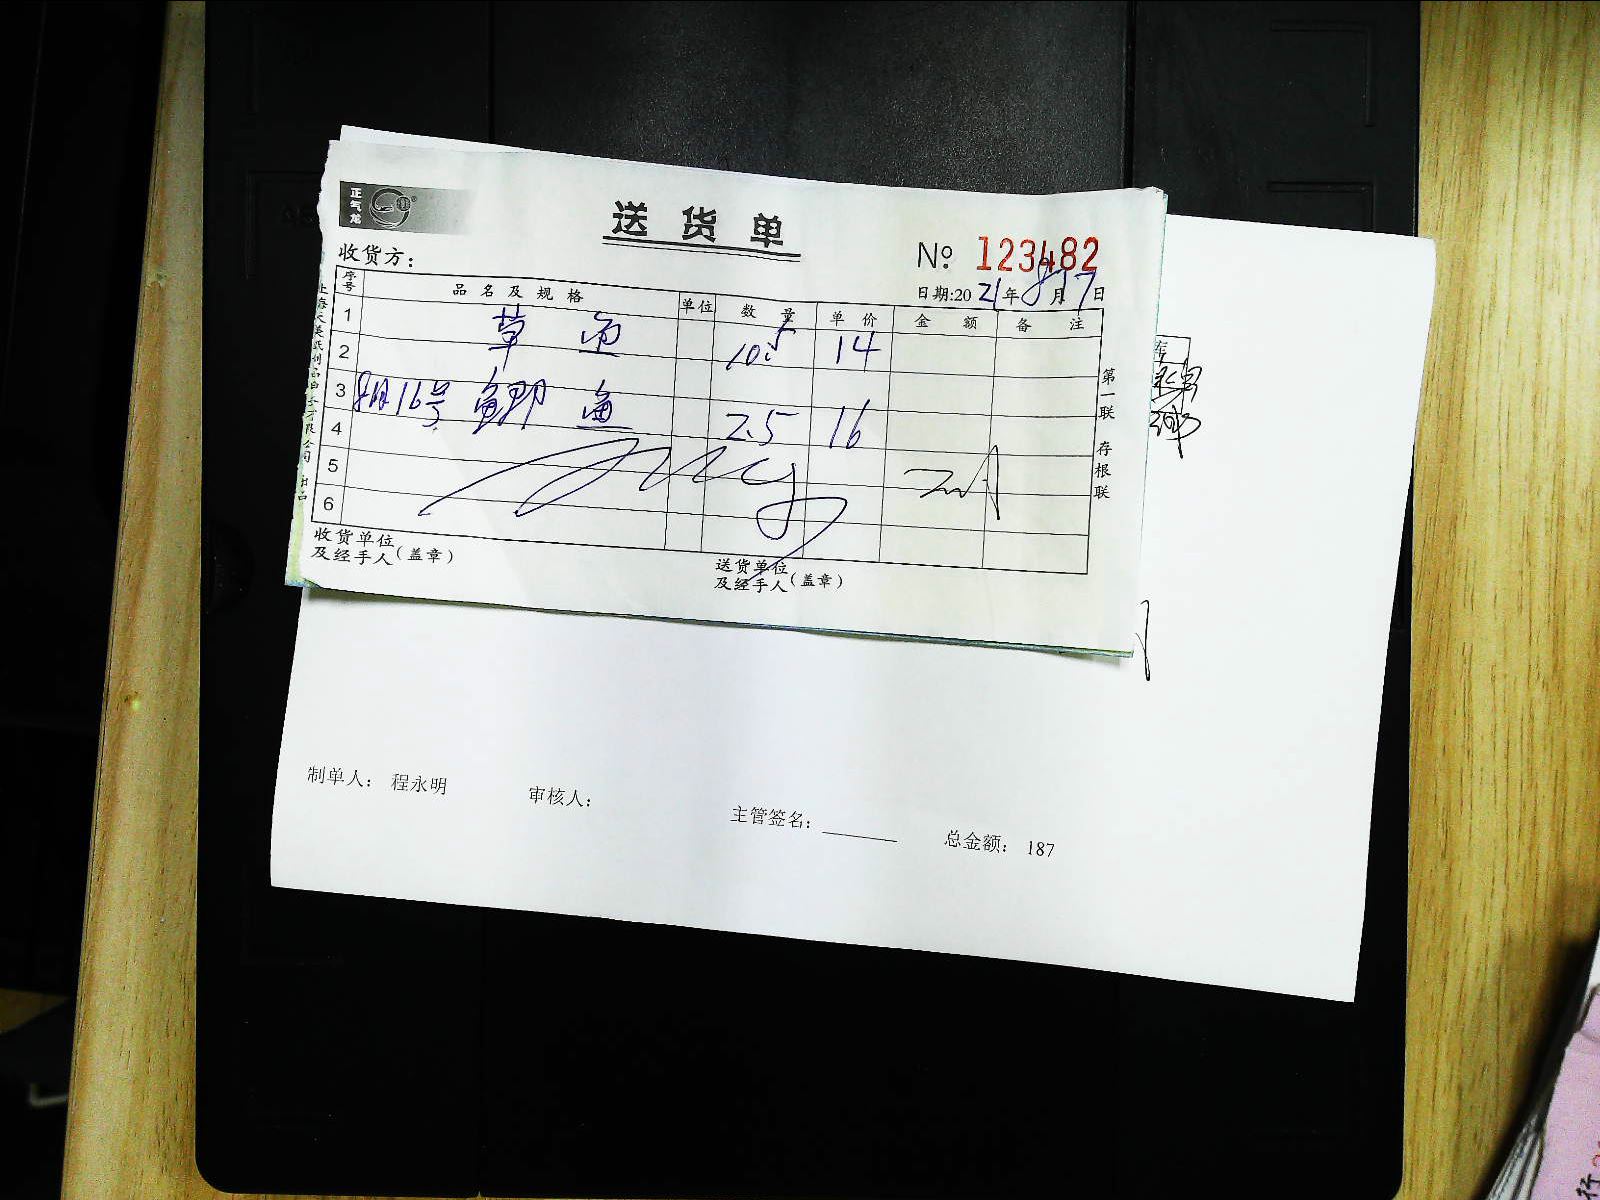 正气龙
送货单
收货方：
No 123482
日期:2021年8月17日
序号 品名及规格 单位 数量 单价 金额 备注
1 草鱼 10.5 14
2
3 8月16号 鲫鱼 2.5 16
4
5
6
第一联 存根联
收货单位
及经手人(盖章)
送货单位
及经手人(盖章)
制单人： 程永明 审核人： 主管签名： 总金额： 187